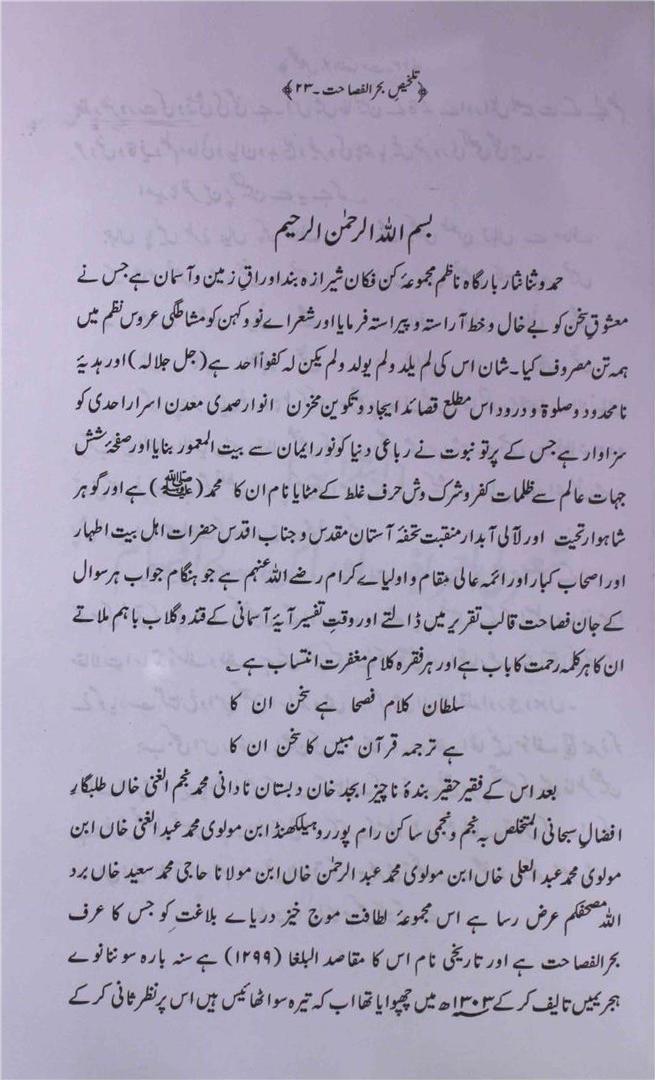 ﴿تلخیصِ بحر الفصاحت۔۲۳﴾
بسم اللہ الرحمٰن الرحیم
حمد و ثنا نثار بارگاہ ناظم مجموعۂ کن فکان شیرازہ بند اوراقِ زمین و آسمان ہے جس نے
معشوقِ سخن کو بے خال و خط آراستہ و پیراستہ فرمایا اور شعراے نو و کہن کو مشاطگی عروس نظم میں
ہمہ تن مصروف کیا۔ شان اس کی لم یلد ولم یولد ولم یکن لہ کفواً احد ہے (جل جلالہ) اور ہدیۂ
نامحدود و صلوۃ و درود اس مطلع قصائد ایجاد و تکوین مخزن انوار صمدی معدن اسرار احدی کو
سزاوار ہے جس کے پرتو نبوت نے رباعی دنیا کو نور ایمان سے بیت المعمور بنایا اور صفحۂ شش
جہات عالم سے ظلمات کفر و شرک وش حرف غلط کے مٹایا نام ان کا محمد (ﷺ) ہے اور گوہر
شاہوار تحیت اور لآلی آبدار منقبت تحفۂ آستان مقدس و جناب اقدس حضرات اہل بیت اطہار
اور اصحاب کبار اور ائمہ عالی مقام و اولیاے کرام رضے اللہ عنہم ہے جو ہنگام جواب ہر سوال
کے جان فصاحت قالب تقریر میں ڈالتے اور وقتِ تفسیر آیۂ آسمانی کے قند و گلاب باہم ملاتے
ان کا ہر کلمہ رحمت کا باب ہے اور ہر فقرہ کلامِ مغفرت انتساب ہے۔
سلطان کلام فصحا ہے سخن ان کا
ہے ترجمہ قرآن مبیں کا سخن ان کا
بعد اس کے فقیر حقیر بندۂ ناچیز ابجد خان دبستان نادانی محمد نجم الغنی خاں طلبگارِ
افضالِ سبحانی المتخلص بہ نجم و نجمی ساکن رام پور روہیلکھنڈ ابن مولوی محمد عبد الغنی خاں ابن
مولوی محمد عبد العلی خاں ابن مولوی محمد عبد الرحمٰن خاں ابن مولانا حاجی محمد سعید خاں برد
اللہ مضجعہم عرض رسا ہے اس مجموعۂ لطافت موج خیز دریاے بلاغت کو جس کا عرف
بحر الفصاحت ہے اور تاریخی نام اس کا مقاصد البلغا (۱۲۹۹) ہے سنہ بارہ سو ننانوے
ہجریمیں تالیف کر کے ۱۳۰۳ھ میں چھپوایا تھا اب کہ تیرہ سو اٹھائیس ہیں اس پر نظر ثانی کر کے